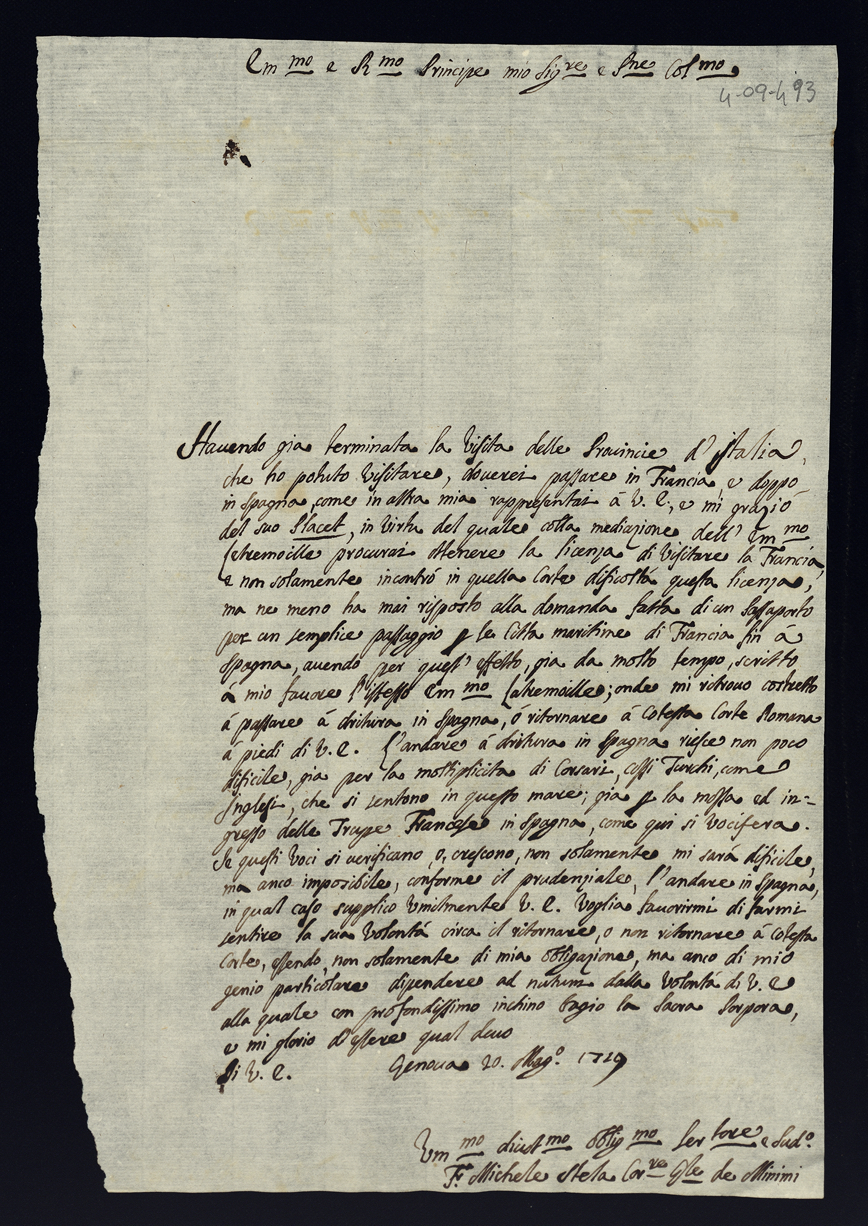 Em mo e R mo Principe mio Sig re e P ne Col mo
4-09-493
Hauendo gia terminata la Visita delle Prouincie d'Italia,
che ho potuto Visitare, douerei passare in Francia, e doppo
in Spagna, come in altra mia rappresentai à V. E., e mi graziò
del suo Placet, in Virtu del quale colla mediazione dell' Em mo
Latremoille procurai ottenere la licenza di Visitare la Francia,
e non solamente incontró in quella Corte dificoltá questa licenza,
ma ne meno ha mai risposto alla domanda fatta di un Passaporto
per un semplice passaggio p le Citta maritime di Francia fin á
Spagna, auendo per quest' effetto, gia da molto tempo, scritto
á mio fauore l'istesso Em mo Latremoille; onde mi ritrouo costretto
á passare á dritura in Spagna, ó ritornare á Cotesta Corte Romana
á piedi di V. E. L'andare á dritura in Spagna riesce non poco
dificile, gia per la moltiplicita di Corsari, cossi Turchi, come
Inglesi, che si sentono in questo mare; gia p la mossa ed in=
gresso delle Trupe Francese in Spagna, come qui si Vocifera.
Se questi Voci si verificano, o, crescono, non solamente mi sará dificile,
ma anco imposibile, conforme il prudenziale, l'andare in Spagna,
in qual caso supplico Vmilmente V. E. Voglia fauorirmi di farmi
sentire la sua Volontá circa il ritornare, o non ritornare á Cotesta
Corte, essendo, non solamente di mia Obligazione, ma anco di mio
genio particolare dipendere ad nutum dalla Volontá di V. E
alla quale con profondissimo inchino bagio la Sacra Porpora,
e mi glorio d'essere qual deuo
Di V. E. Genoua 20. Mag.o 1719
Vm mo diuot mo Oblig mo Ser tore e Sud.o
Fr. Michele Stela Cor re Gle de Minimi